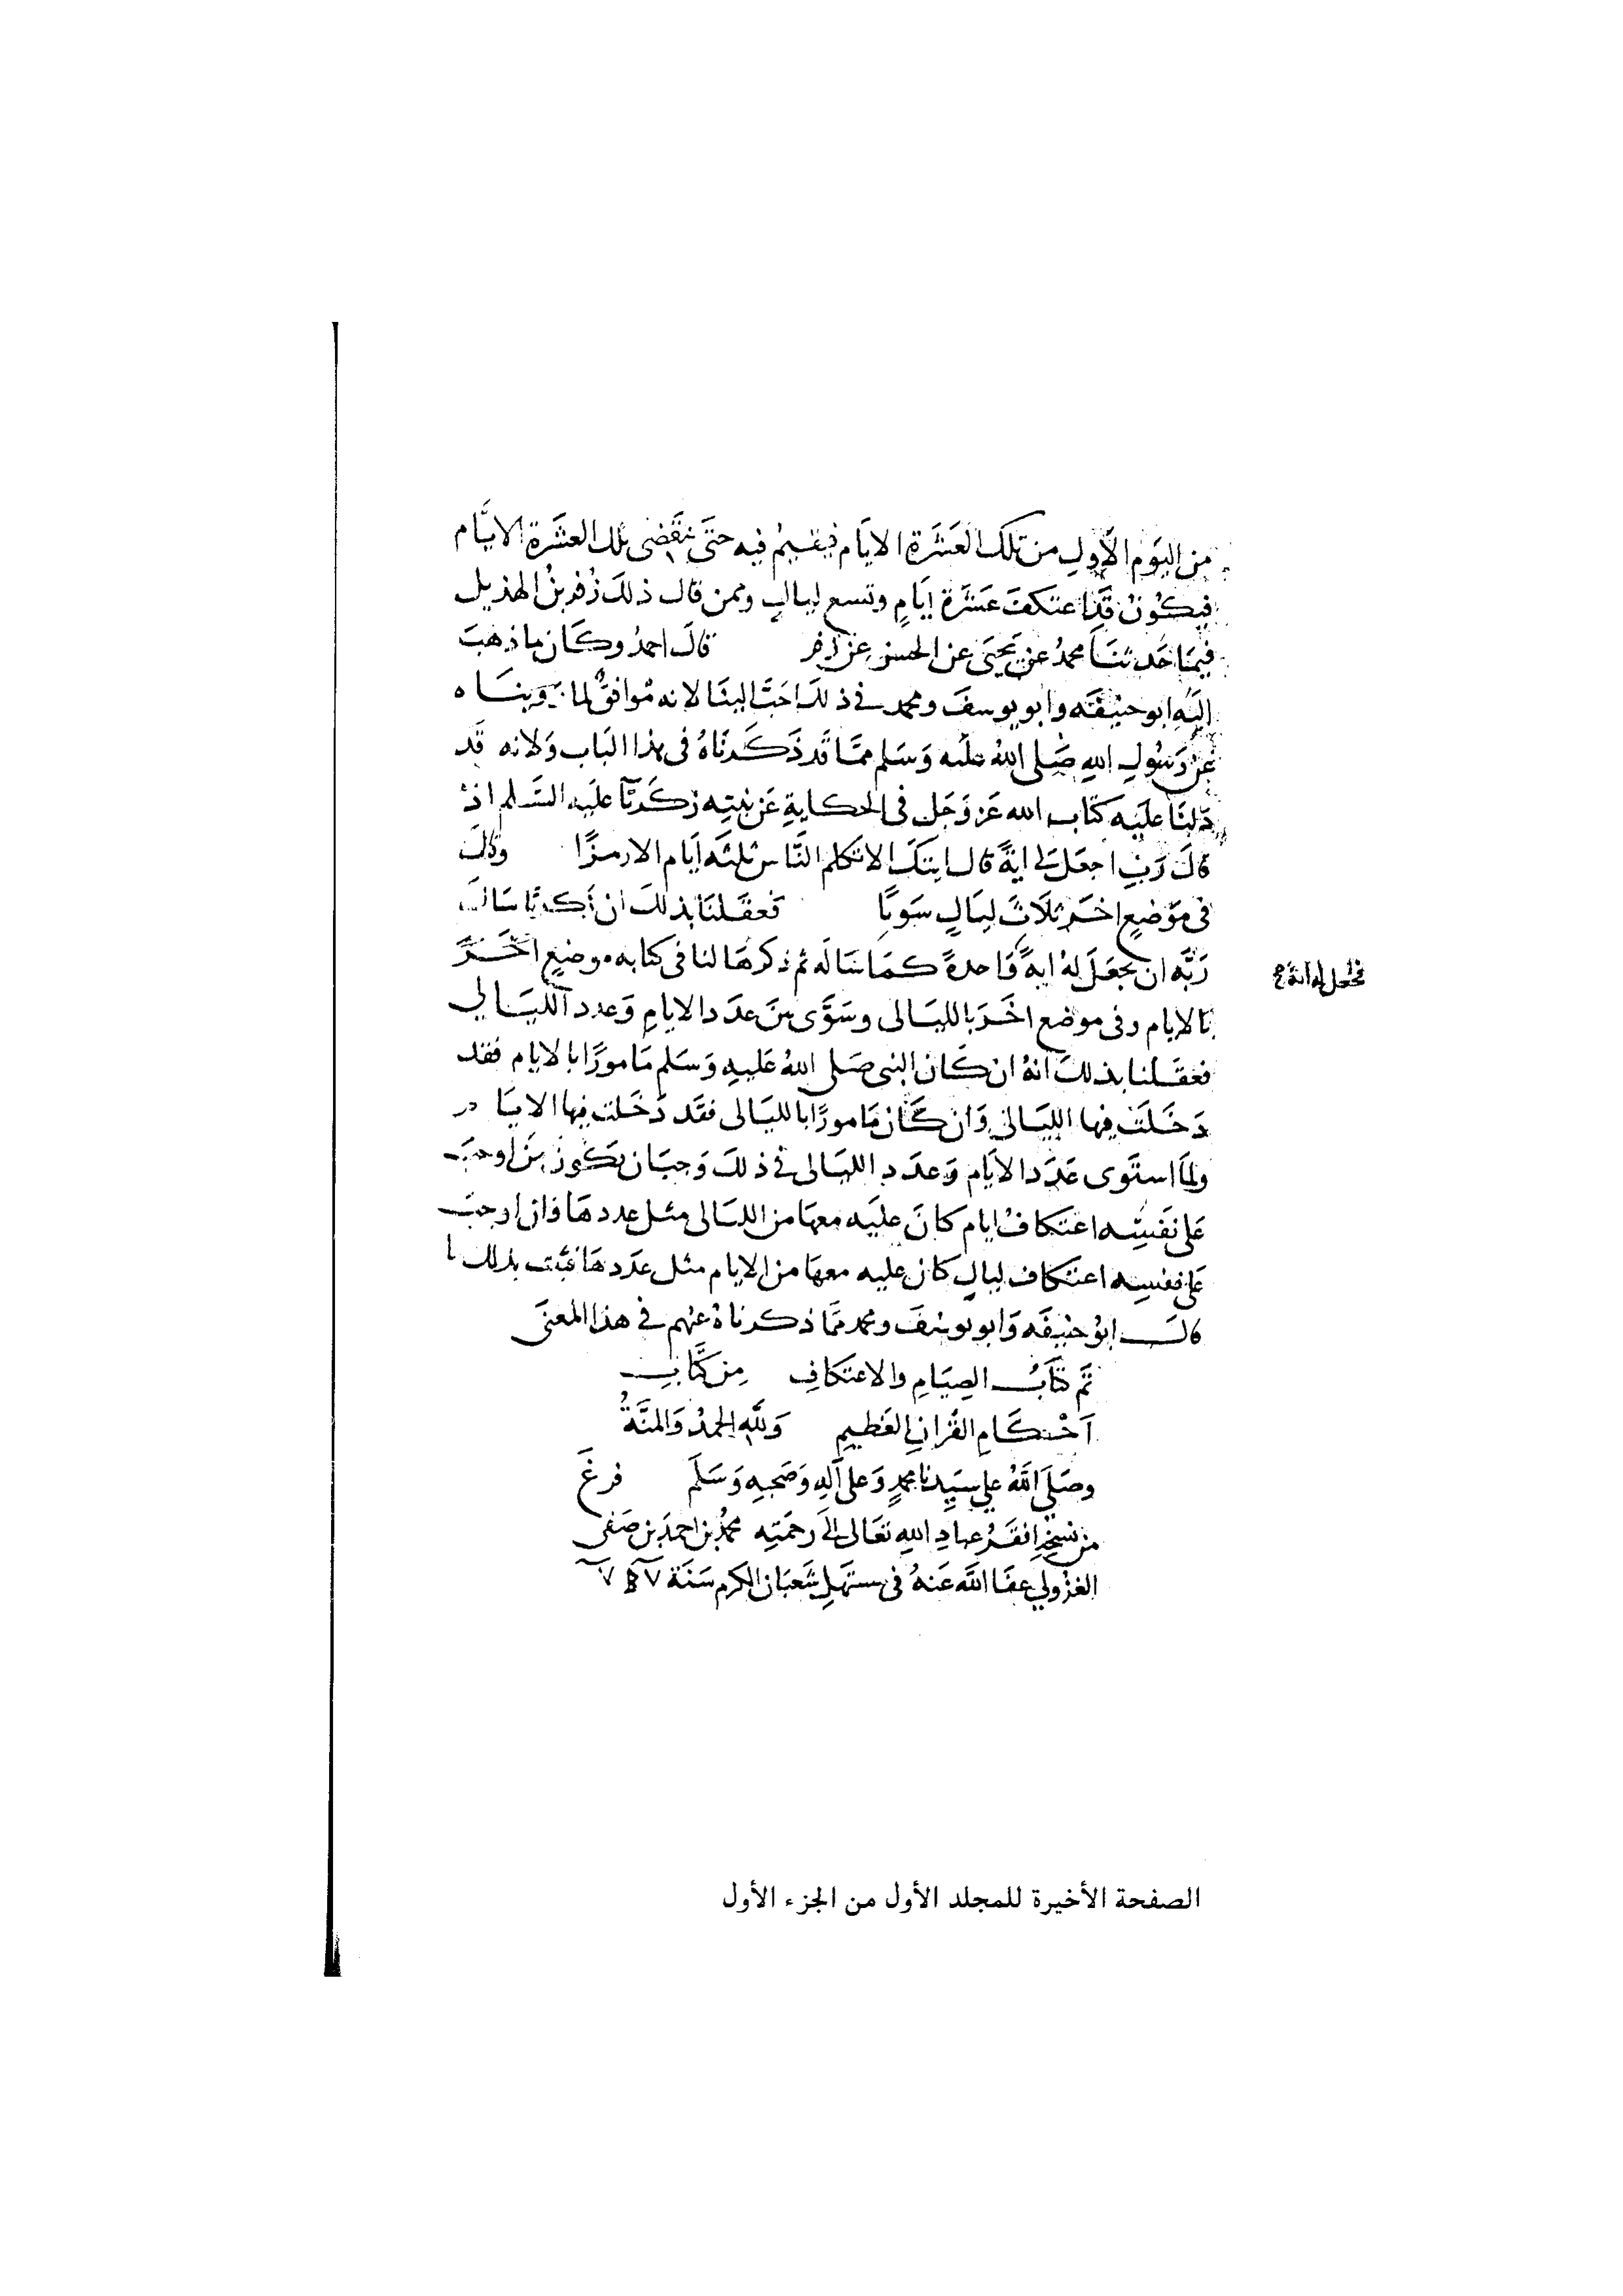 من اليَوم الأولِ من تلكَ العَشَرَة الايَام فيقيمُ فيه حتَى تنقَضى تلك العشَرة الايَّام
فيكُونُ قَد اعتكفَ عَشَرَة ايَامٍ وتسع ليالٍ وممن قال ذلكَ زُفر بنُ الهذيل
فيمَا حَدثنَا محمدُ عن يَحيَى عن الحسن عن زفر قالَ احمدُ وكَان ما ذهبَ
اليَه ابو حنيفَه وابو يوسفَ ومحمد في ذلكَ احَبَّ الينَا لانه مُوافقٌ لما رَوينَاه
عن رَسُولِ اللهِ صَلى اللهُ عليه وَسَلم ممَّا قَد ذَكَرنَاهُ فى هذا البَاب وَلانه قَد
دَلنَا علَيه كتَاب الله عَز وَجَل فى الحكايةِ عَن نبيّه زكَريَّا علَيه السَّلم اذ
قالَ رَب اجعَل لى ايةً قال ايتكَ الا تكلم النَّاس ثلثَه ايَام الا رمزًا وقالَ
فى مَوضعٍ اخَر ثلَاثَ ليَالٍ سَويًّا فعقَلنَا بذلكَ ان زكريَّا سَالَ
رَبَّه ان يجعَلَ لهُ ايةً وَاحدةً كمَا سَالَه ثم ذكرهَا لنا فى كتابه موضعٍ اخَر
بالايام وفى موضع اخَرَ بالليَالى وسَوَّى بينَ عدَد الايامِ وَعدد الليَالي
فعقَلنا بذلكَ انهُ ان كَان النبى صَلى اللهُ عَليهِ وَسَلم مَامورًا بالايام فقد
دَخَلَت فيها الليَالى وَان كَان مَامورًا بالليَالى فقَد دَخَلت فيها الايَام
ولمَا استَوى عَدَد الايَام وَعدَد الليَالى في ذلكَ وَجبَ ان يكونَ من اوجبَ
عَلى نفسِه اعتكافَ ايام كانَ علَيه معهَا من الليَالى مثل عددهَا وَان اوجبَ
عَلى نفسِه اعتكاف ليالٍ كان عليه معهَا من الايام مثل عدَدهَا فثبت بذلك ما
قالَ ابوُ حنيفَه وَابو يوسُفَ ومحمد ممَّا ذكرناهُ عنهم في هذا المعنَى
تَم كتَابُ الصِيَامِ والاعتكافِ مِن كتَابِ
اَحْكَامِ القُرانِ العَظيمِ وَللهِ الحمدُ وَالمنَّةُ
وصَلَى اللَّهُ عَلي سَيِدنا محمدٍ وَعَلى آلهِ وَصَحبِه وَسَلَّم فرغَ
من نسخِه افقَرُ عبادِ اللهِ تعَالى الىَ رحمَتِه محمدُ بن احمدَ بن صَفى
الغزُولي عفَا اللَّه عَنهُ فى مستهَلِ شَعبَان المكرم سَنَة
الصفحة الأخيرة للمجلد الأول من الجزء الأول